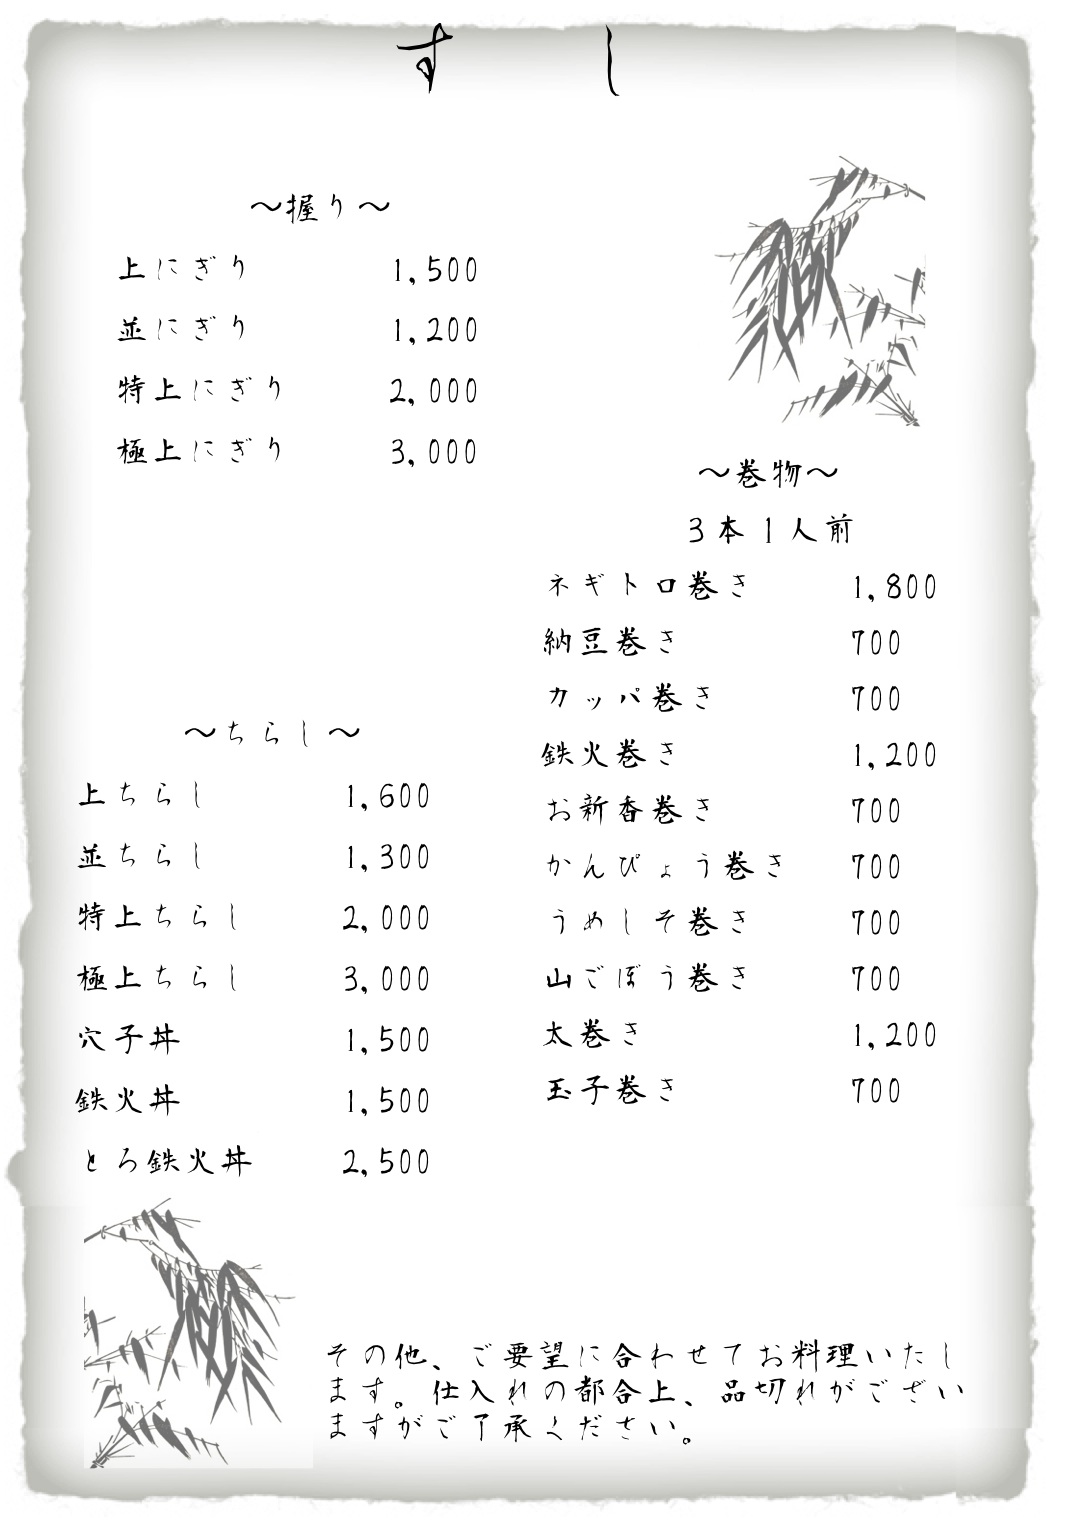 すし
～握り～
上にぎり 1,500
並にぎり 1,200
特上にぎり 2,000
極上にぎり 3,000
～巻物～
3本1人前
ネギトロ巻き 1,800
納豆巻き 700
カッパ巻き 700
鉄火巻き 1,200
お新香巻き 700
かんぴょう巻き 700
うめしそ巻き 700
山ごぼう巻き 700
太巻き 1,200
玉子巻き 700
～ちらし～
上ちらし 1,600
並ちらし 1,300
特上ちらし 2,000
極上ちらし 3,000
穴子丼 1,500
鉄火丼 1,500
とろ鉄火丼 2,500
その他、ご要望に合わせてお料理いたし
ます。仕入れの都合上、品切れがござい
ますがご了承ください。